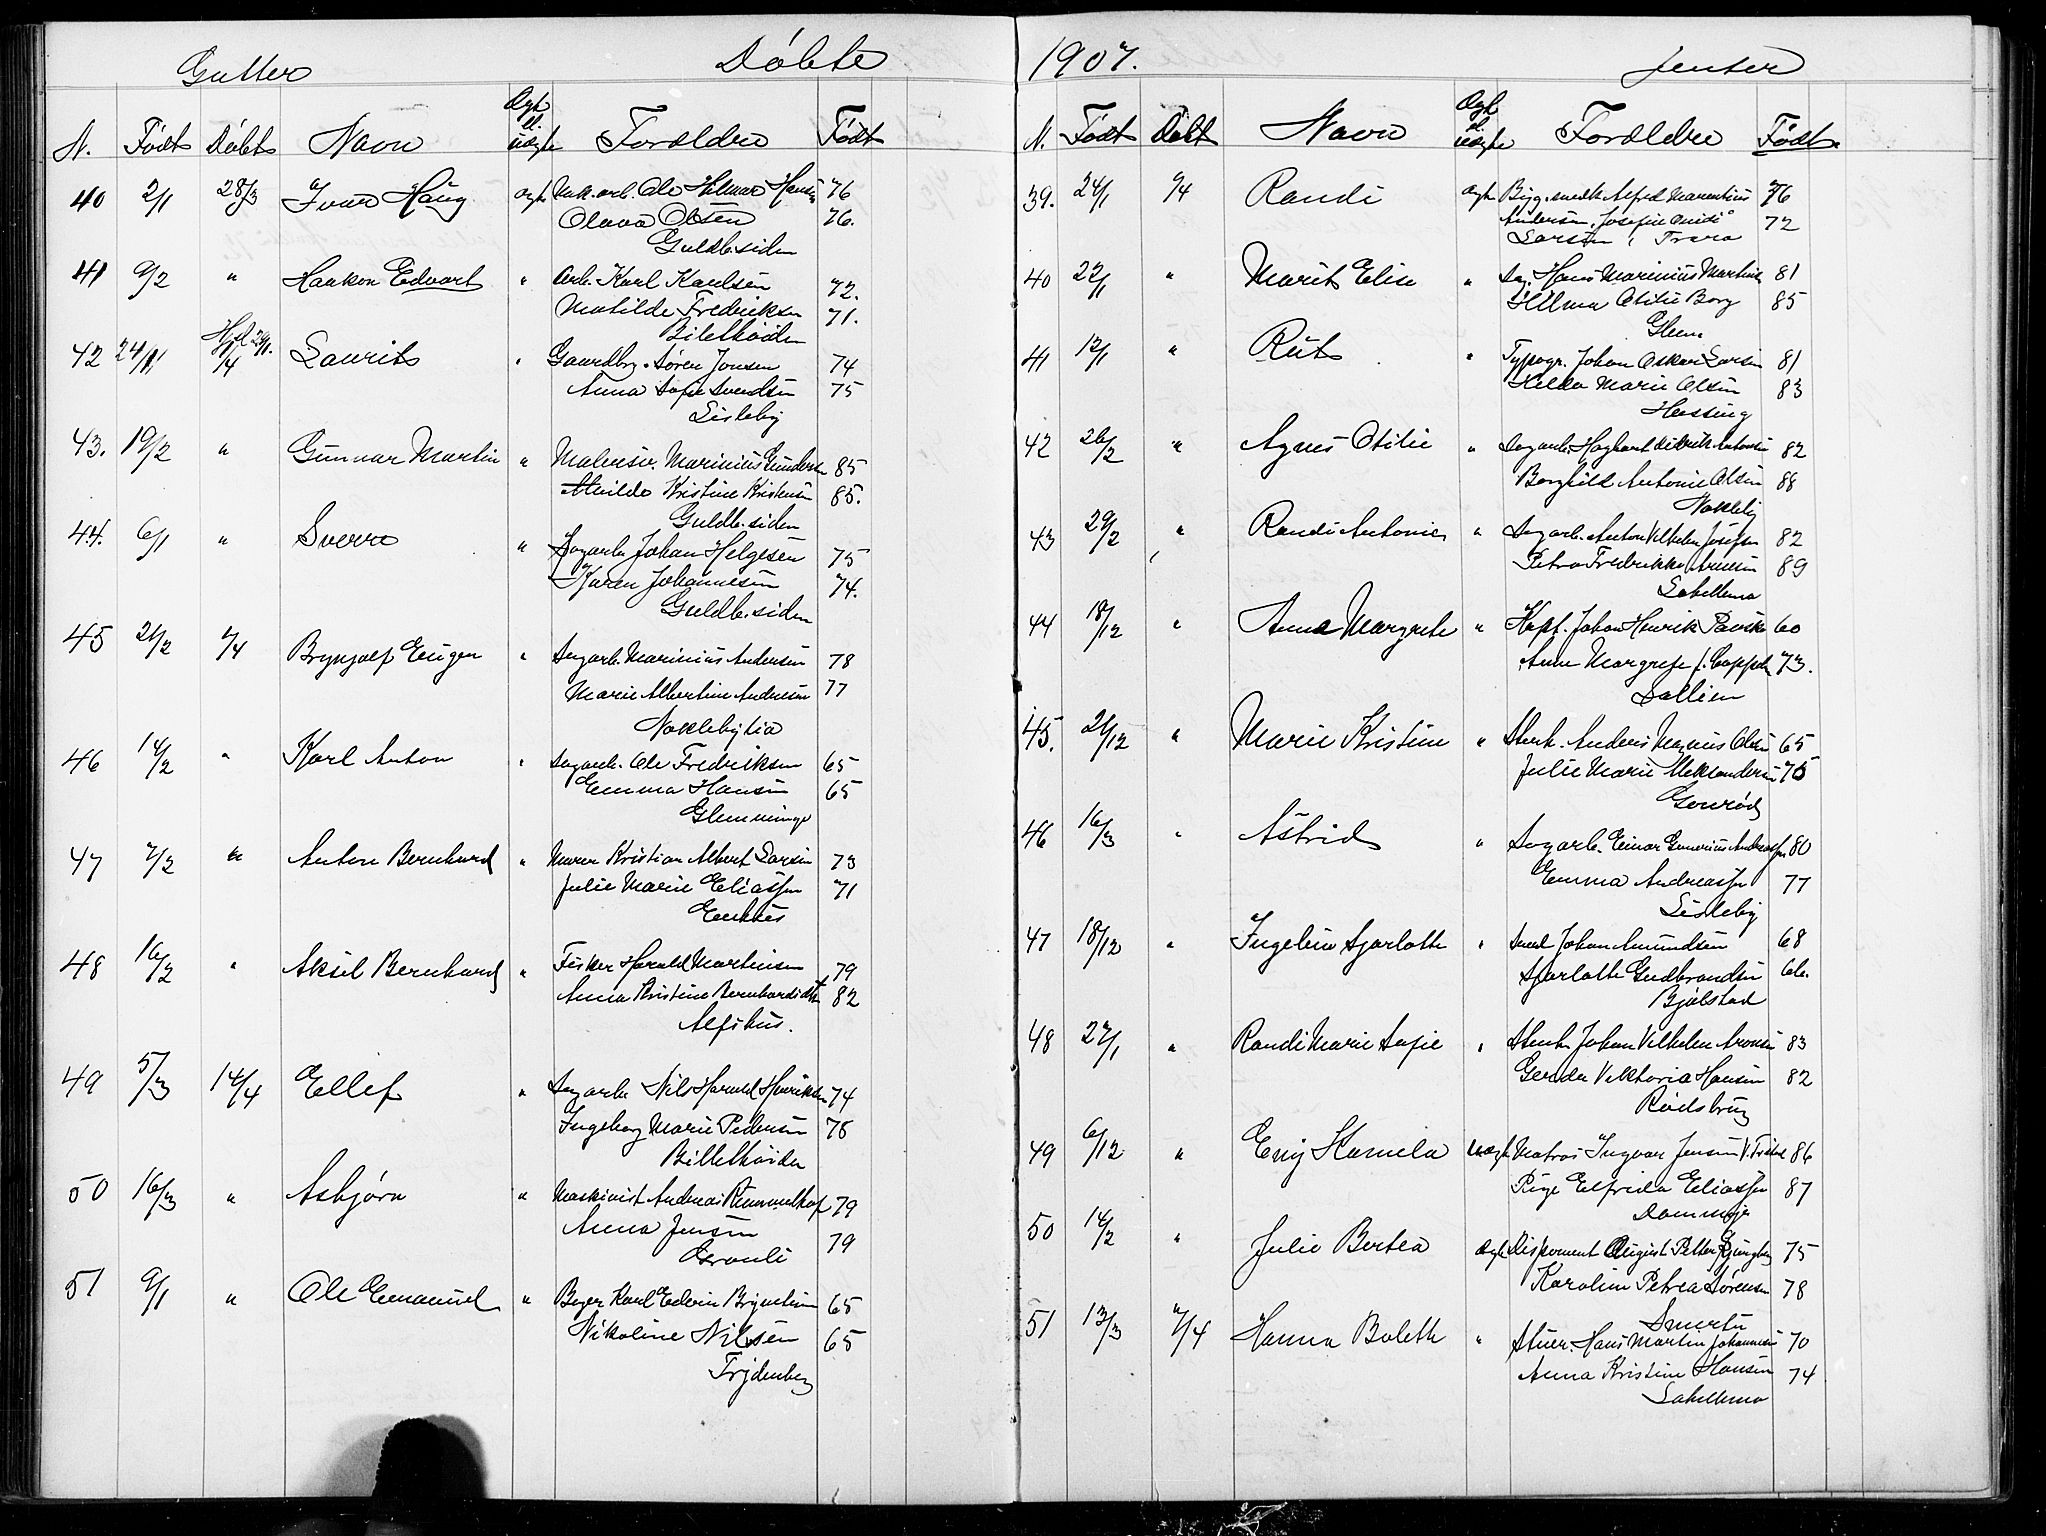 Gutter Døbte
N. Født Døbt Navn Ægte el. uægte Foreldre Født
40 2/1 28/3 Ivar Haug ægte Mek. arb. Ole Hilmar Hansen 76
Olava Olsen 76.
Guldb.siden
41 9/2 " Haakon Edvart " Arb. Karl Karlsen 72.
Matilde Fredriksen 71.
Biletköiden
42 24/11 Hjd. 29/1. 1/4 Laurits " Gaardbr. Søren Jonsen 74
Anna Sofie Svendsen 75
Lisleby
43. 19/2 " Gunnar Martin " Malersv. Marinius Gundersen 85
Kristine Kristensen 85.
Guldb.siden
44. 6/1 " Sverre " Sagarb. Johan Helgesen 75
Karen Johannesen 74.
Guldb.siden
45 21/2 7/4 Brynjolf Eugen " Sagarb. Marinius Andersen 78
Marie Albertine Andersen 77
Noklebylia
46 14/2 " Karl Anton " Sagarb. Ole Fredriksen 65
Emma Hansen 65
Glemminge
47 7/2 " Anton Bernhard " Murer Kristian Albert Larsen 73
Julie Marie Eliassen 71
Enhus
48 16/2 " Aksel Bernhard " Fisker Harald Martinsen 79
Anna Kristine Bernhardsdtr 82
Alfihus.
49 5/3 14/4 Ellef " Sagarb. Nils Harald Henriksen 74
Ingeborg Marie Pedersen 78
Billetköiden
50 16/3 " Asbjørn " Maskinist Andreas Rummelhof 79
Anna Jensen 79
Gronli
51 9/1 " Ole Emanuel " Karl Edvin 65
Nikoline Nilsen 65
Trydenberg
1907. Jenter
N. Født Døbt Navn Ægte el. uægte Foreldre Født
39. 24/1 1/4 Randi ægte Alfred Marentius 76
Andersen, Josefine 72
Larsen, Trara
40 22/1 " Marit Elise " Hans Marinius Martins 81
Hilma Otilie Borg 85
Glem
41 12/1 " Rut " Typogr. Johan Oskar Larsen 81
Hilda Marie Olsen 83
Hassing
42 26/2 " Agnes Otilie " Sagarb. Hagbart Antonsen 82
Borghild Antonie Olsen 88
Nokleby
43 29/2 " Randi Antonie " Sagarb. Anton Vilhelm Josefsen 82
Petra Fredrikke Arnesen 89
Labellema
44 18/12 " Anna Margrete " Kapt. Johan Henrik 60
Anne Margrete f. Cappelen 73.
Dallien
45. 21/12 " Marie Kristine " Stenh. Anders Magnus Olsen 65
Julie Marie Aleksandersen 75
Gourød
46 16/3 " Astrid " Sagarb. Einar Gunerius Andreassen 80
Emma Andreassen 77
Lisleby
47 18/12 " Ingeborg Sjarlotte " Smed Johan Amundsen 68
Sjarlotte Gudbrandsen 66.
Bjølstad
48 27/1 " Randi Marie Sofie " Stenh. Johan Vilhelm Aronsen 83
Gerda Viktoria Hansen 82
Rødsbrug
49 6/12 " Eny Kamela uægte Matros Ingvar Jensen 86
Pige Elfrida Eliassen 87
Dammyr
50 14/2 " Julie Bertea ægte Disponent August Petter Ljungberg 75
Karoline Petrea Sørensen 78
Smertu
51 13/3 7/4 Hanna Bolette " Stuer. Hans Martin Johannesen 70
Anna Kristine Hansen 74
Labellema